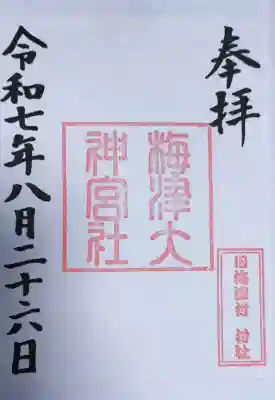 奉拝
梅津大
神宮社
旧梅津村 村社
令和七年八月二十六日